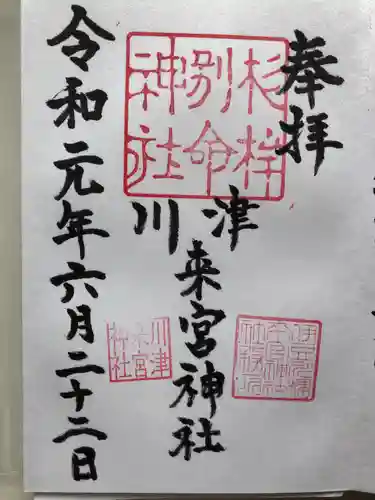 奉拝
杉桙
別命
神社
川津
来宮神社
川津
来宮
神社
令和元年六月二十二日